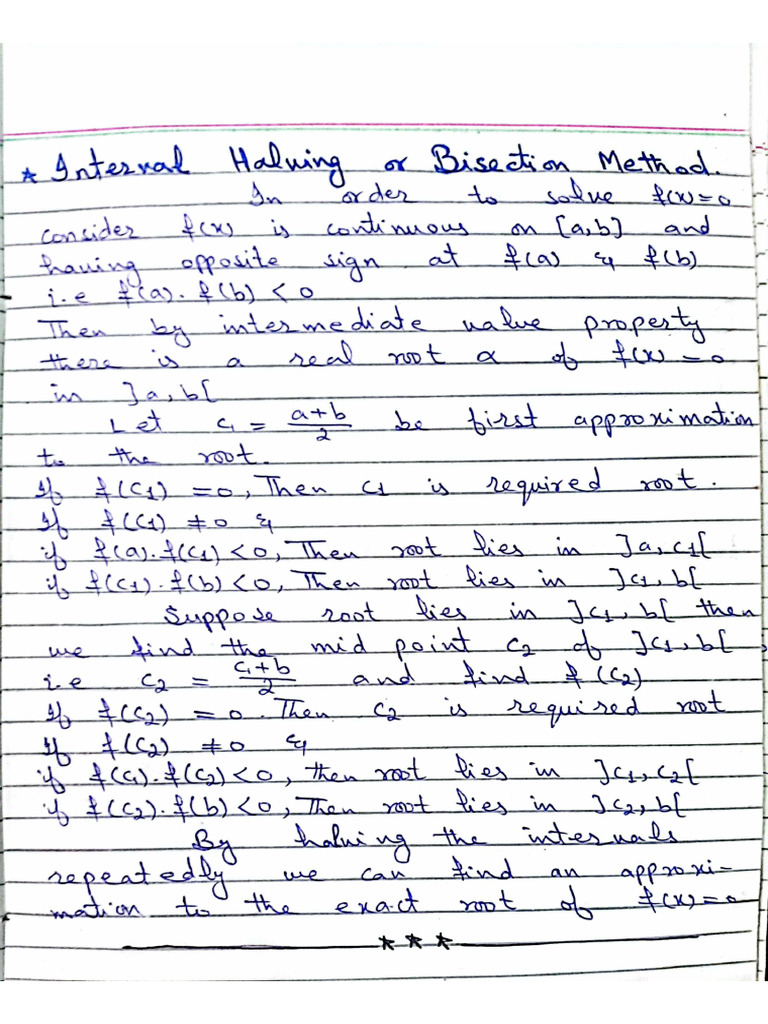 * Interval Halving or Bisection Method.
In order to solve f(x)=0
consider f(x) is continuous on [a,b] and
having opposite sign at f(a) & f(b)
i.e f(a).f(b) < 0
Then by intermediate value property
there is a real root α of f(x) = 0
in ]a,b[
Let c₁ = a+b/2 be first approximation
to the root.
If f(c1) = 0, Then c1 is required root.
If f(c1) ≠ 0 &
if f(a).f(c1) < 0, Then root lies in ]a,c1[
if f(c1).f(b) < 0, Then root lies in ]c1,b[
Suppose root lies in ]c1,b[ then
we find the mid point c2 of ]c1,b[,
i.e c2 = c₁+b/2 and find f(c2)
If f(c2) = 0. Then c2 is required root
If f(c2) ≠ 0 &
if f(c1).f(c2) < 0, then root lies in ]c1,c2[
if f(c2).f(b) < 0, Then root lies in ]c2,b[
By halving the intervals
repeatedly we can find an approxi-
mation to the exact root of f(x) = 0
* * *